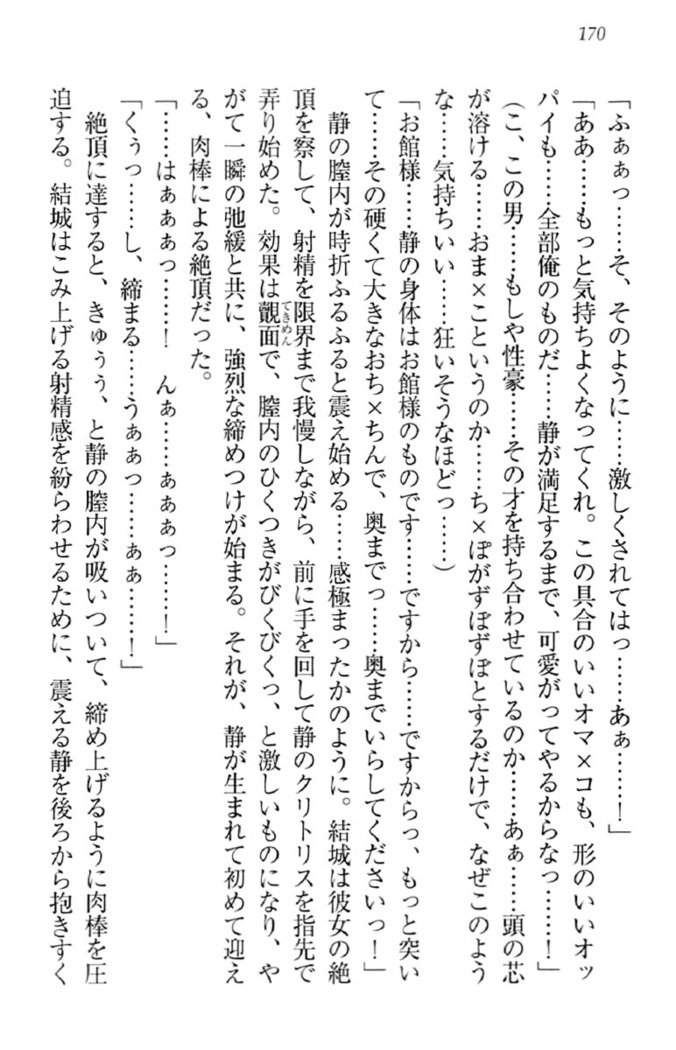 170
「ふぁぁっ……そ、そのように……激しくされてはっ……あぁ……！」
「ああ……もっと気持ちよくなってくれ。この具合のいいオマ×コも、形のいいオッ
パイも……全部俺のものだ……静が満足するまで、可愛がってやるからなっ……！」
（こ、この男……もしや性豪……その才を持ち合わせているのか……あぁ……頭の芯
が溶ける……おま×こというのか……ち×ぽがずぼずぼとするだけで、なぜこのよう
な……気持ちいい……狂いそうなほどっ……）
「お館様……静の身体はお館様のものです……ですから……ですからっ、もっと突い
て……その硬くて大きなおち×ちんで、奥までっ……奥までいらしてくださいっ！」
　静の膣内が時折ふるふると震え始める……感極まったかのように。結城は彼女の絶
頂を察して、射精を限界まで我慢しながら、前に手を回して静のクリトリスを指先で
弄り始めた。効果は覿面てきめんで、膣内のひくつきがびくびくっ、と激しいものになり、や
がて一瞬の弛緩と共に、強烈な締めつけが始まる。それが、静が生まれて初めて迎え
る、肉棒による絶頂だった。
「……はぁぁぁっ……！　んぁ……ぁぁぁっ……！」
「くぅっ……し、締まる……うぁぁっ……ぁぁ……！」
　絶頂に達すると、きゅぅぅ、と静の膣内が吸いついて、締め上げるように肉棒を圧
迫する。結城はこみ上げる射精感を紛らわせるために、震える静を後ろから抱きすく